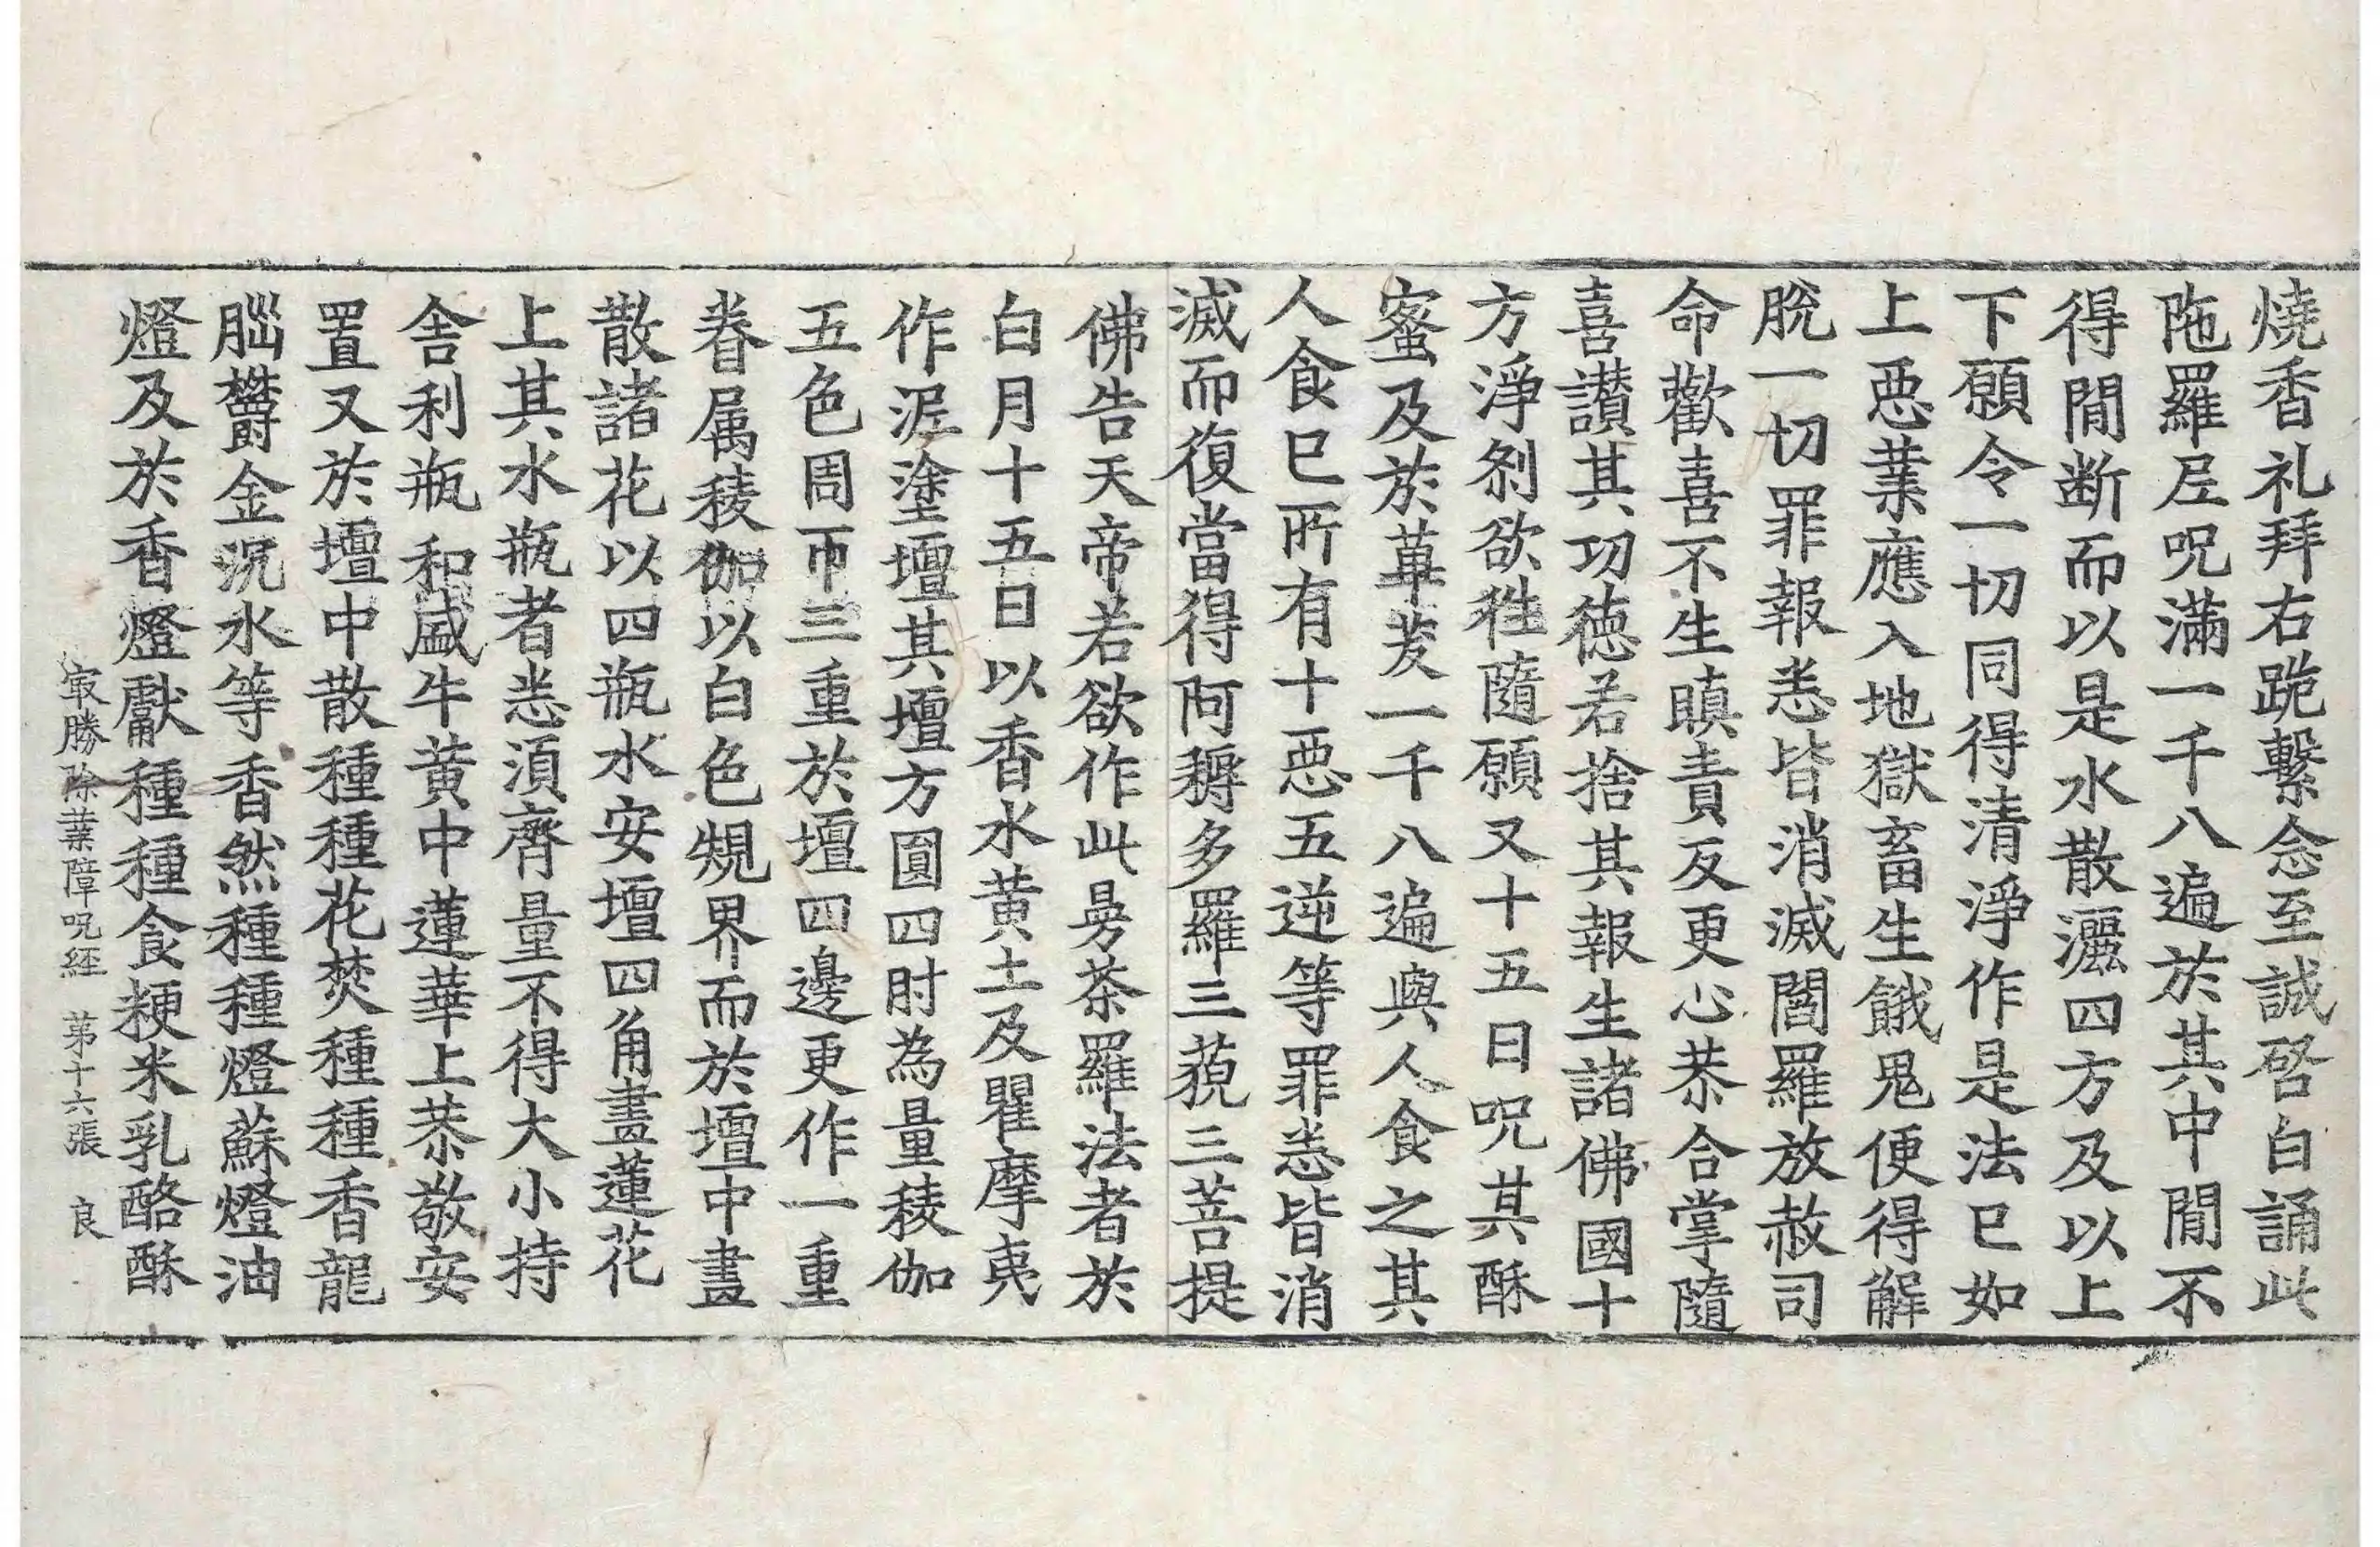 燒香礼拜右跪繫念至誠啓白誦此
陁羅尼呪滿一千八遍於其中閒不
得閒断而以是水散灑四方及以上
下願令一切同得清淨作是法已如
上惡業應入地獄畜生餓鬼便得解
脫一切罪報悉皆消滅閻羅放赦司
命歡喜不生瞋責反更心恭合掌隨
喜讃其功德若捨其報生諸佛國十
方淨刹欲往隨願又十五日呪其酥
蜜及於蓽茇一千八遍與人食之其
人食已所有十惡五逆等罪悉皆消
滅而復當得阿耨多羅三藐三菩提
佛告天帝若欲作此曼茶羅法者於
白月十五日以香水黄土及瞿摩夷
作泥塗壇其壇方圓四肘為量稜伽
五色周帀三重於壇四邊更作一重
眷属稜伽以白色規界而於壇中畫
散諸花以四瓶水安壇四角畫蓮花
上其水瓶者悉須齊量不得大小持
舍利瓶和盛牛黄中蓮華上恭敬安
置又於壇中散種種花焚種種香龍
腦欝金沉水等香然種種燈蘇燈油
燈及於香燈獻種種食粳米乳酪酥
冣勝除業障呪經 第十六張 良